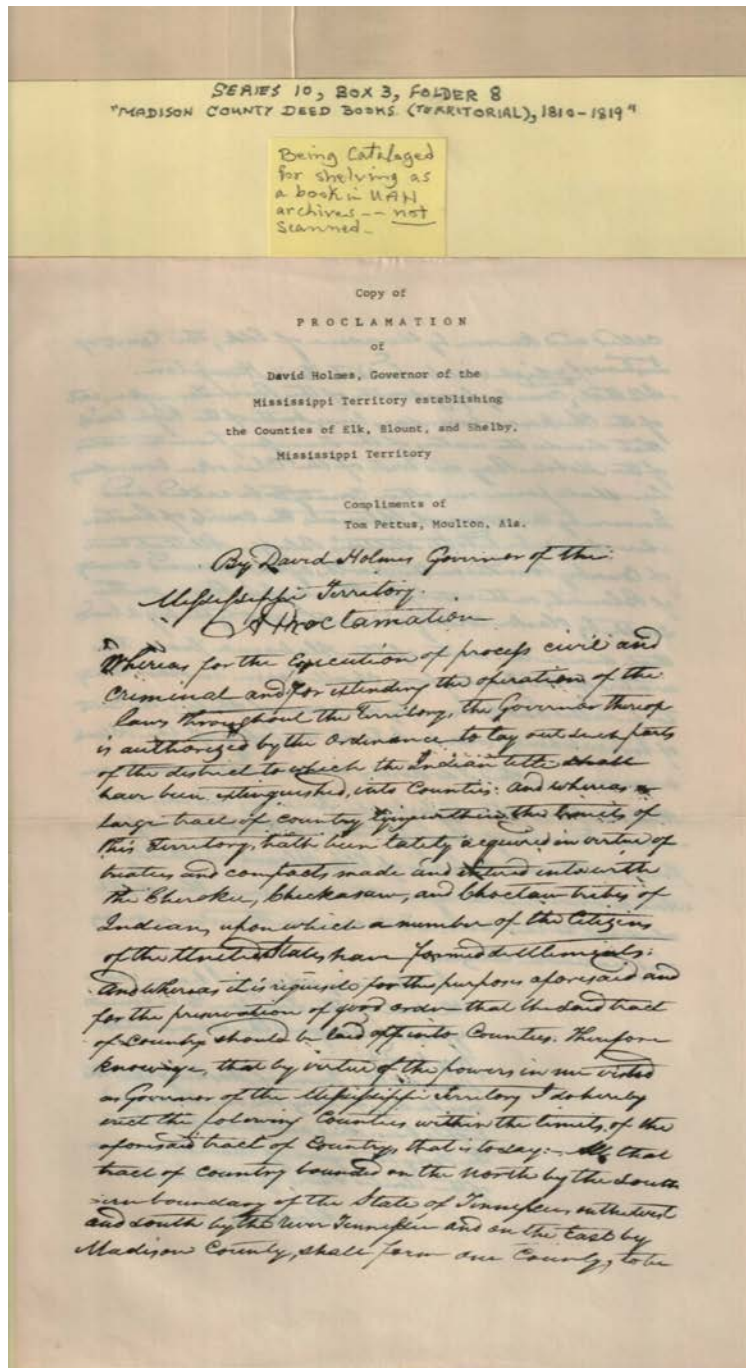 SERIES 10, BOX 3, FOLDER 8
"MADISON COUNTY DEED BOOKS (TERRITORIAL), 1810-1819"
Being Cataloged
for shelving as
a book in UAH
archives -- not
scanned.
Copy of
PROCLAMATION
of
David Holmes, Governor of the
Mississippi Territory establishing
the Counties of Elk, Blount, and Shelby,
Mississippi Territory
Compliments of
Tom Pettus, Moulton, Ala.
By David Holmes Governor of the
Mississippi Territory.
A Proclamation
Whereas for the Execution of process civil and
Criminal and for extending the operation of the
laws throughout the Territory, the Governor thereof
is authorized by the Ordinance to lay out such parts
of the district to which the Indian title shall
have been extinguished, into Counties: and whereas a
large tract of country lying within the limits of
this Territory, hath been lately acquired in virtue of
treaties and compacts made and entered into with
the Cherokee, Chickasaw, and Choctaw tribes of
Indians, upon which a number of the Citizens
of the United States have formed settlements:
And whereas it is requisite for the purposes aforesaid and
for the preservation of good order that the said tract
of Country should be laid off into Counties. Therefore
know ye, that by virtue of the powers in me vested
as Governor of the Mississippi Territory I do hereby
erect the following Counties within the limits of the
aforesaid tract of Country, that is to say: All that
tract of country bounded on the North by the South
ern boundary of the State of Tennessee, on the west
and South by the river Tennessee and on the East by
Madison County, shall form one County, to be